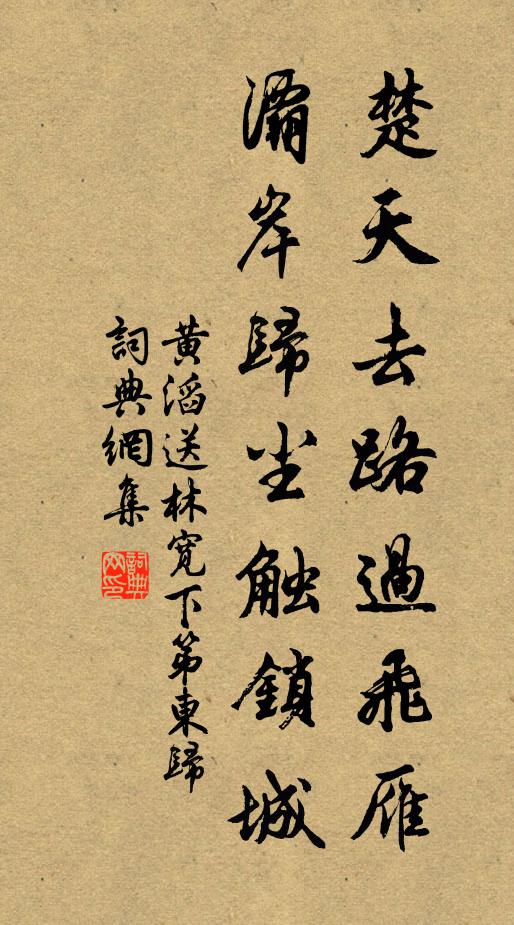 楚天去路過飛雁
灞岸歸尘触鎖城
黃滔送林寬下第東歸
詞典網集
詞典网印